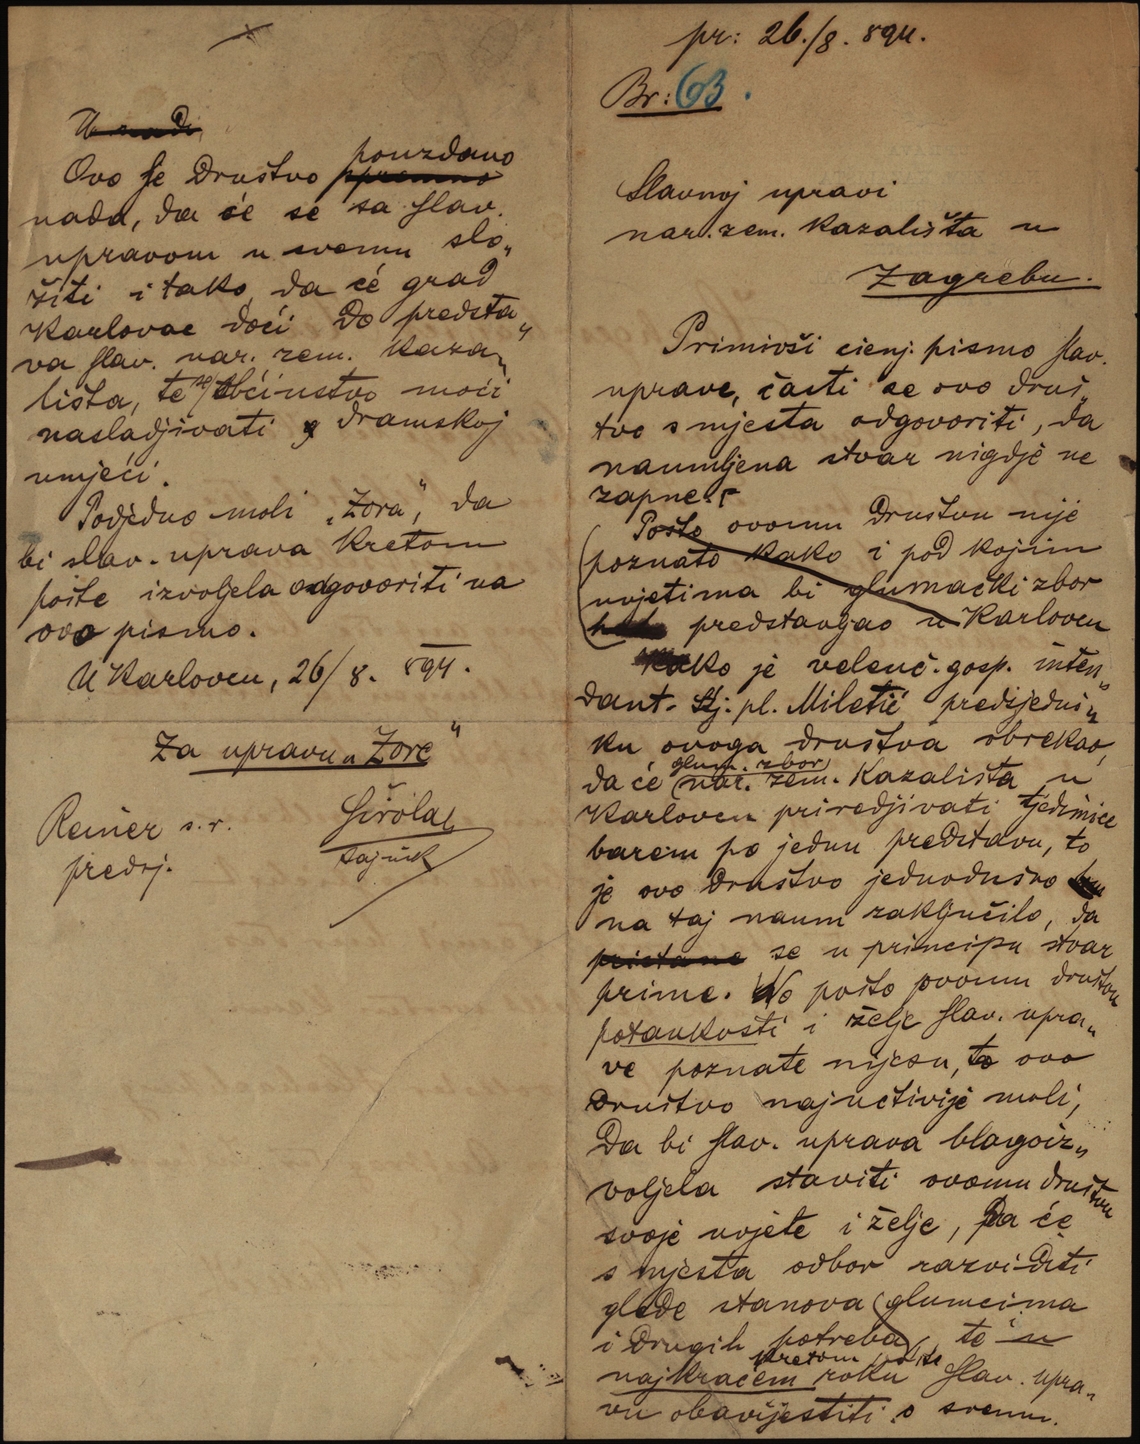 pr: 26./8. 894.
Br: 63.
Slavnoj upravi
nar. zem. kazališta u
Zagrebu.
Primivši cienj. pismo slav.
uprave, časti se ovo druš„
tvo s mjesta odgovoriti, da
naumljena stvar nigdje ne
zapne.
Pošto ovomu društvu nije
poznato kako i pod kojim
uvjetima bi glumački zbor
predstavljao u Karlovcu
Kako je velenč. gosp. inten„
dant. Stj. pl. Miletić predsjedni„
ku ovoga društva obrekao,
glum. zbor
da će nar. zem. kazališta u
Karlovcu priredjivati tjedimice
barem po jednu predstavu, to
je ovo društvo jednodušno
na taj naum zaključilo, da
se u principu stvar
prime. No pošto ovomu društvu
potankosti i želje slav. upra„
ve poznate nijesu, to ovo
društvo najučtivije moli,
da bi slav. uprava blagoiz„
voljela staviti ovomu društvu
svoje uvjete i želje, da će
s mjesta odbor razviditi
glede stanova glumcima
i drugih potreba, te u
kretom pošte
najkraćem roku slav. upra„
vu obavijestiti o svemu.
U nadi
pouzdano
Ovo se društvo spremno
nada, da će se sa slav.
upravom u svemu slo„
žiti i tako da će grad
Karlovac doći do predsta„
va slav. nar. zem. kaza„
lišta, te se obćinstvo moći
nasladjivati dramskoj
umjeći.
Podjedno moli „Zora", da
bi slav. uprava kretom
pošte izvoljela odgovoriti na
ovo pismo.
U Karlovcu, 26/8. 894.
Za upravu „Zore"
Reiner s. r.
predsj.
Širola
tajnik